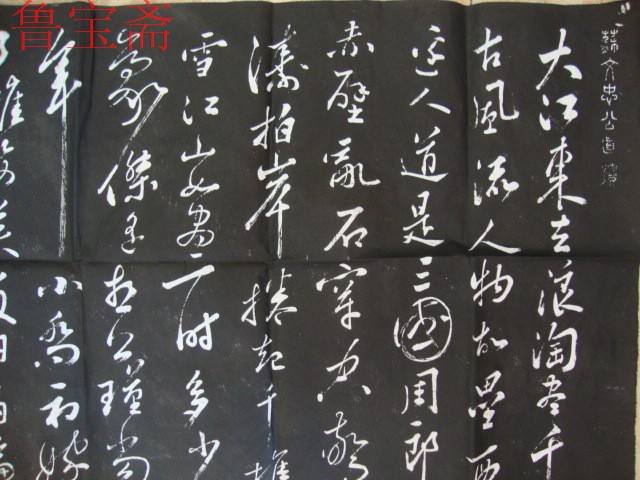 鲁宝斋
蘇文忠公真蹟
大江東去浪淘盡千
古風流人物故壘西
邊人道是三國周郎
赤壁亂石穿空驚
濤拍岸捲起千堆
雪江山如畫一時多少
豪傑遥想公瑾當
年小喬初嫁
了雄姿英